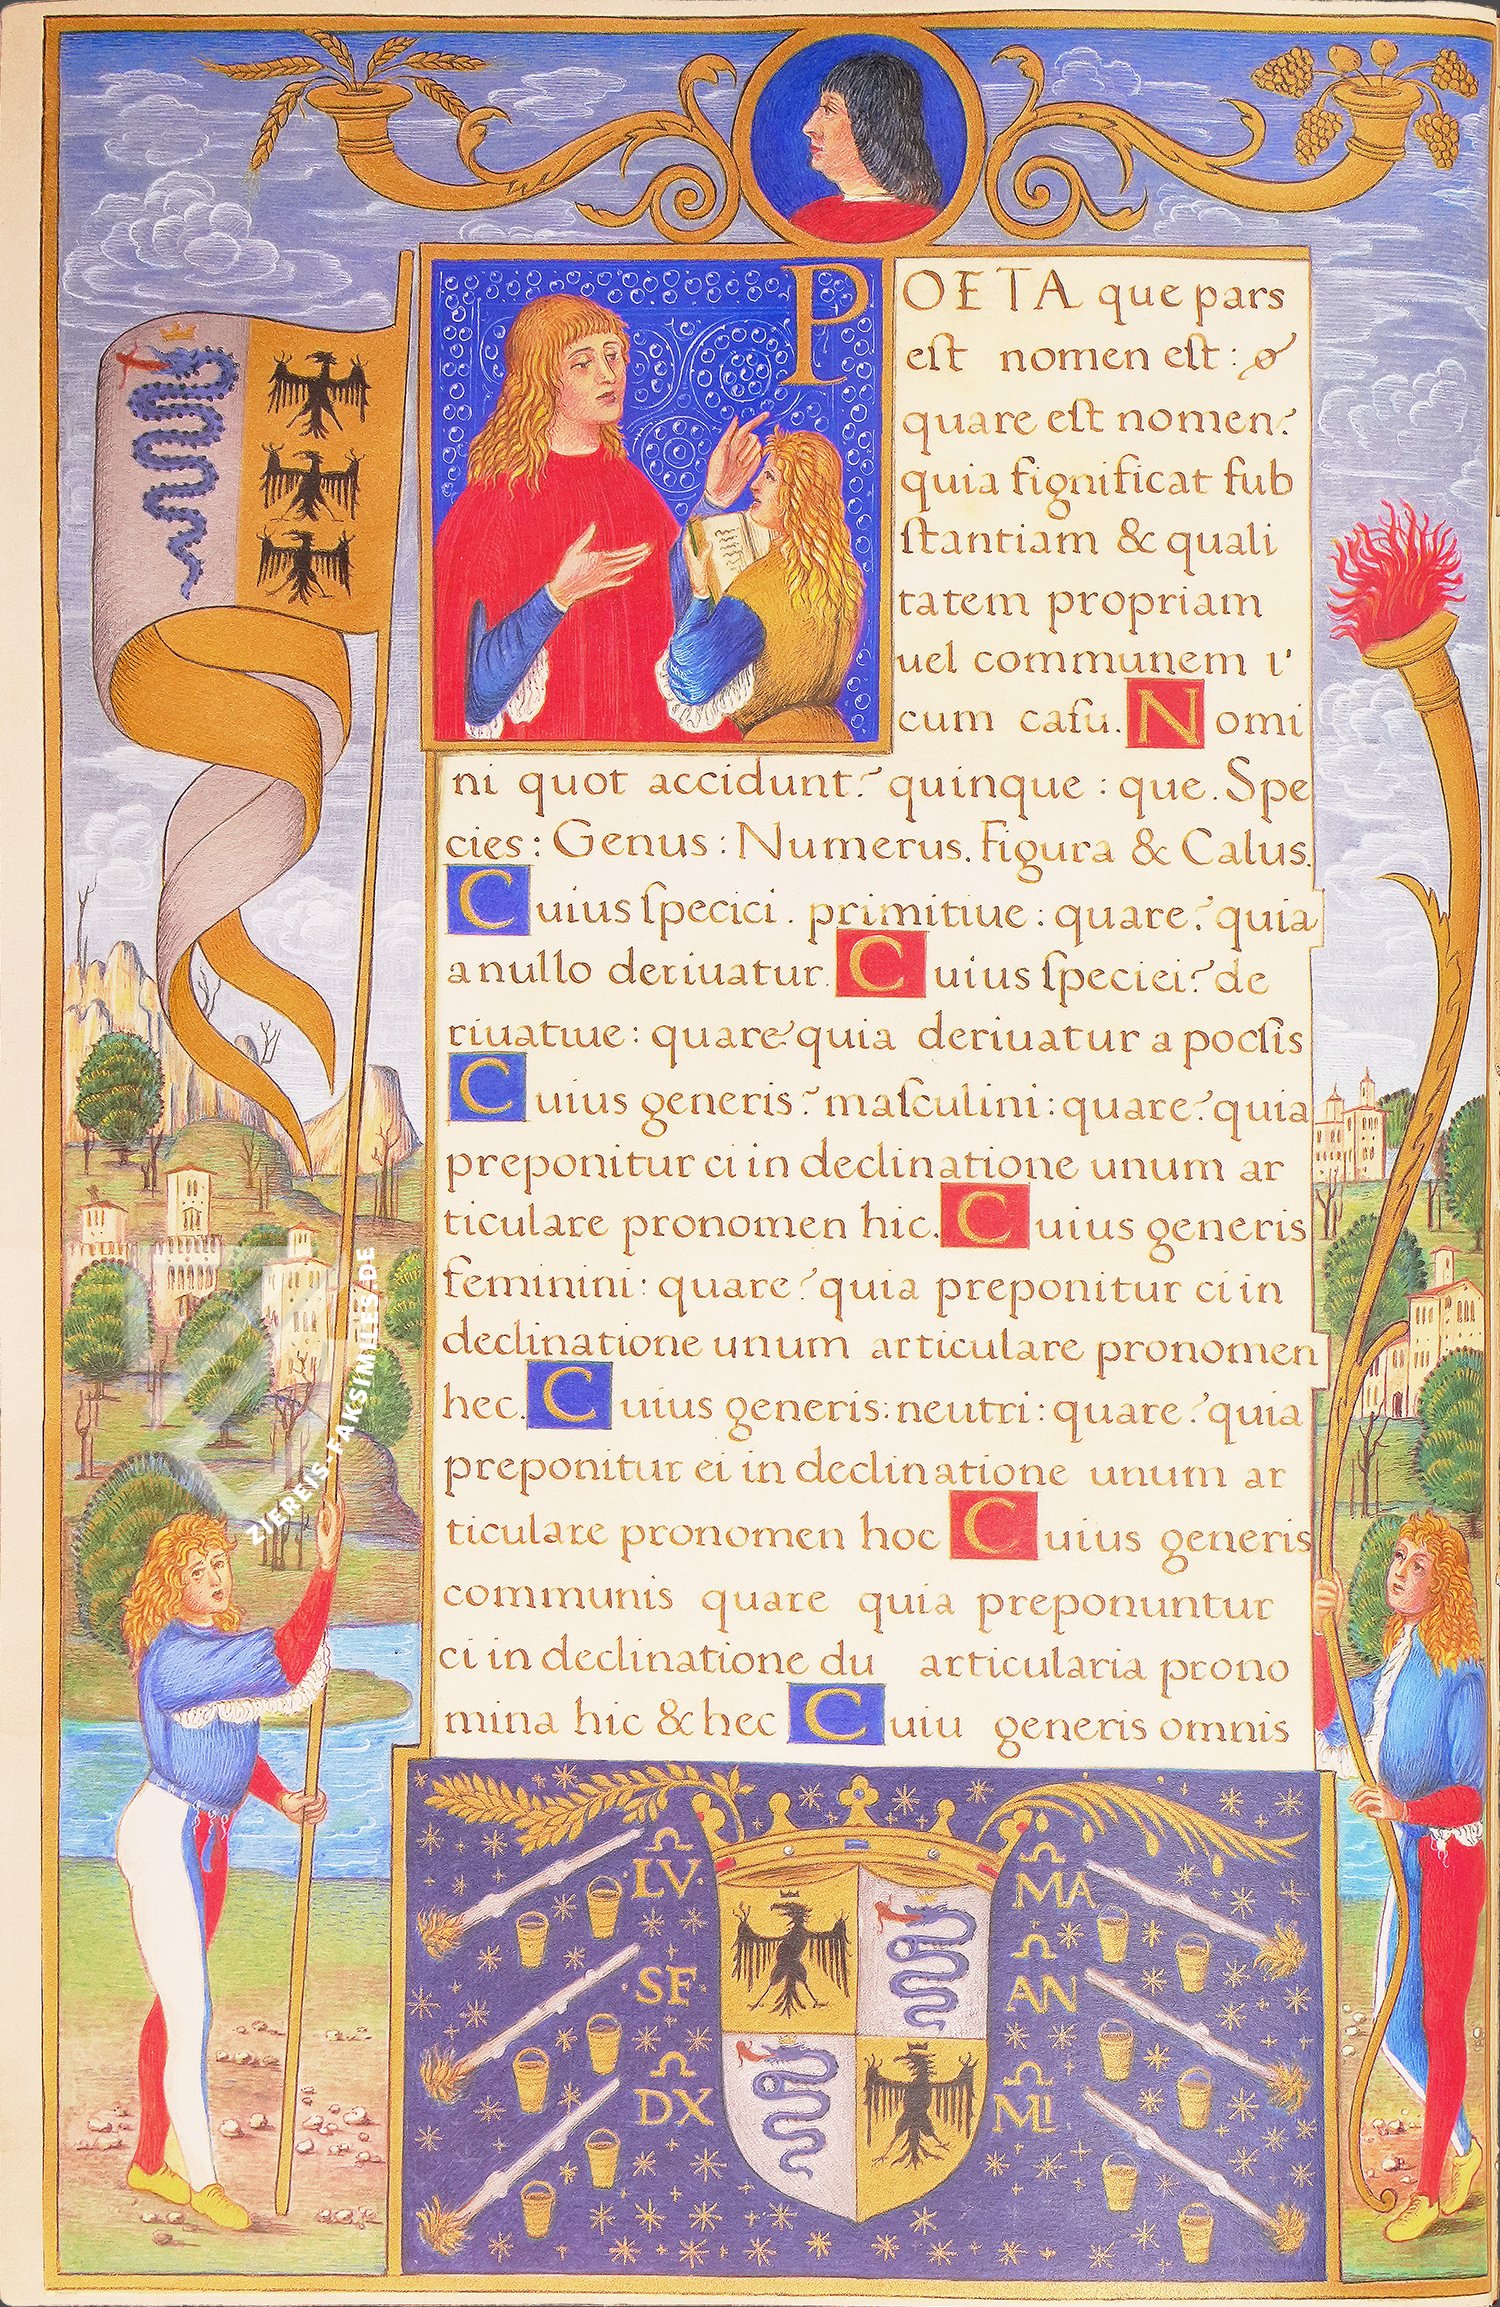 POETA que pars
est nomen est:
quare est nomen?
quia ſignificat ſub
ſtantiam & quali
tatem propriam
uel communem
cum caſu. Nomi
ni quot accidunt? quinque : que. Spe
cies : Genus : Numerus. Figura & Caſus.
Cuius ſpeciei . primitiue : quare? quia
a nullo deriuatur. Cuius ſpeciei? de
riuatiue : quare? quia deriuatur a poeſis
Cuius generis? maſculini : quare? quia
preponitur ei in declinatione unum ar
ticulare pronomen hic. Cuius generis
feminini : quare? quia preponitur ei in
declinatione unum articulare pronomen
hec. Cuius generis: neutri : quare? quia
preponitur ei in declinatione unum ar
ticulare pronomen hoc Cuius generis
communis quare quia preponuntur
ei in declinatione du articularia prono
mina hic & hec Cuiu generis omnis
·LV· MA
·SF· AN
DX MI
ZIEREIS-FAKSIMILES.DE